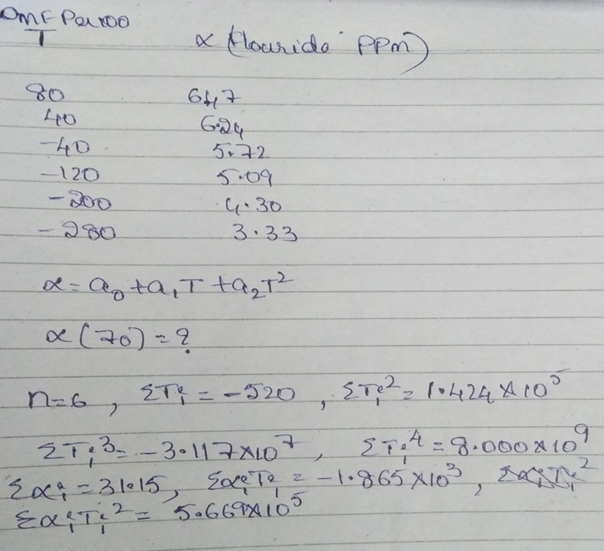 T α (Flouride PPM)
80 6.47
40 6.24
-40 5.72
-120 5.09
-200 4.30
-280 3.33
α = a₀ + a₁T + a₂T²
α(70) = ?
n=6 , ΣTᵢ = -520 , ΣTᵢ² = 1.424×10⁵
ΣTᵢ³ = -3.117×10⁷ , ΣTᵢ⁴ = 8.000×10⁹
Σαᵢ = 31.15 , ΣαᵢTᵢ = -1.865×10³ , ΣαᵢTᵢ²
ΣαᵢTᵢ² = 5.669×10⁵